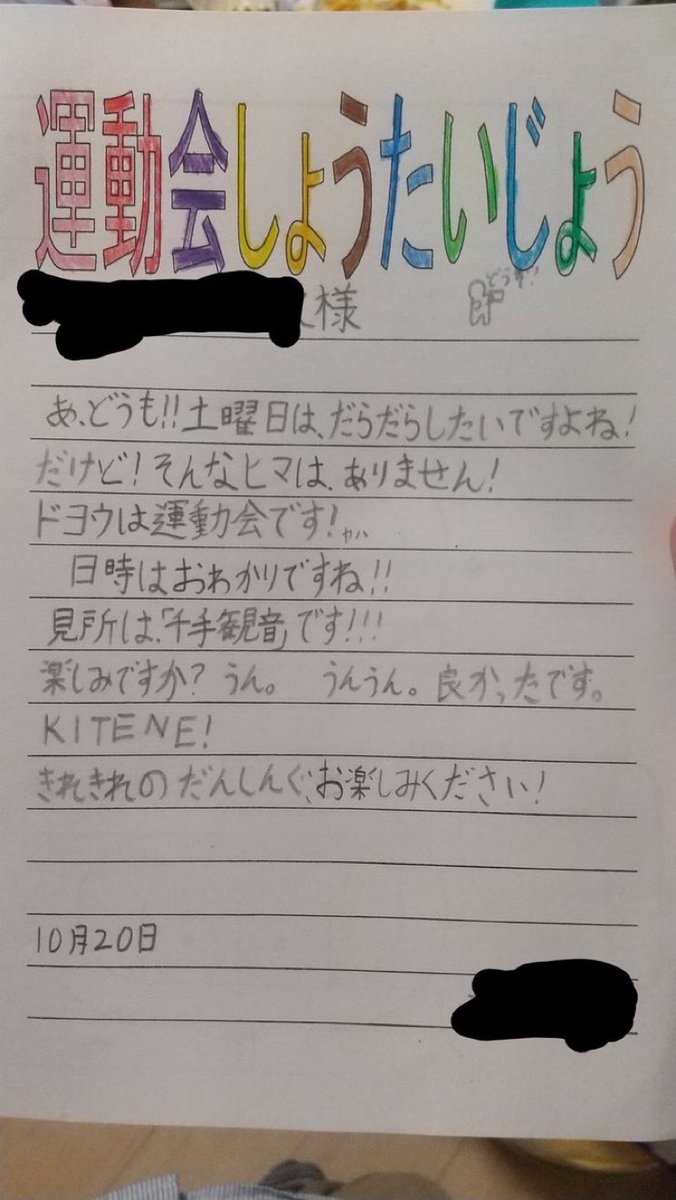 運動会しょうたいじょう
様
どうも!
あ、どうも!!土曜日は、だらだらしたいですよね!
だけど!そんなヒマは、ありません!
ドヨウは運動会です!
日時はおわかりですね!!
見所は、「千手観音」です!!!
楽しみですか?うん。 うんうん。良かったです。
KITENE!
きれきれのだんしんぐ、お楽しみください!
10月20日